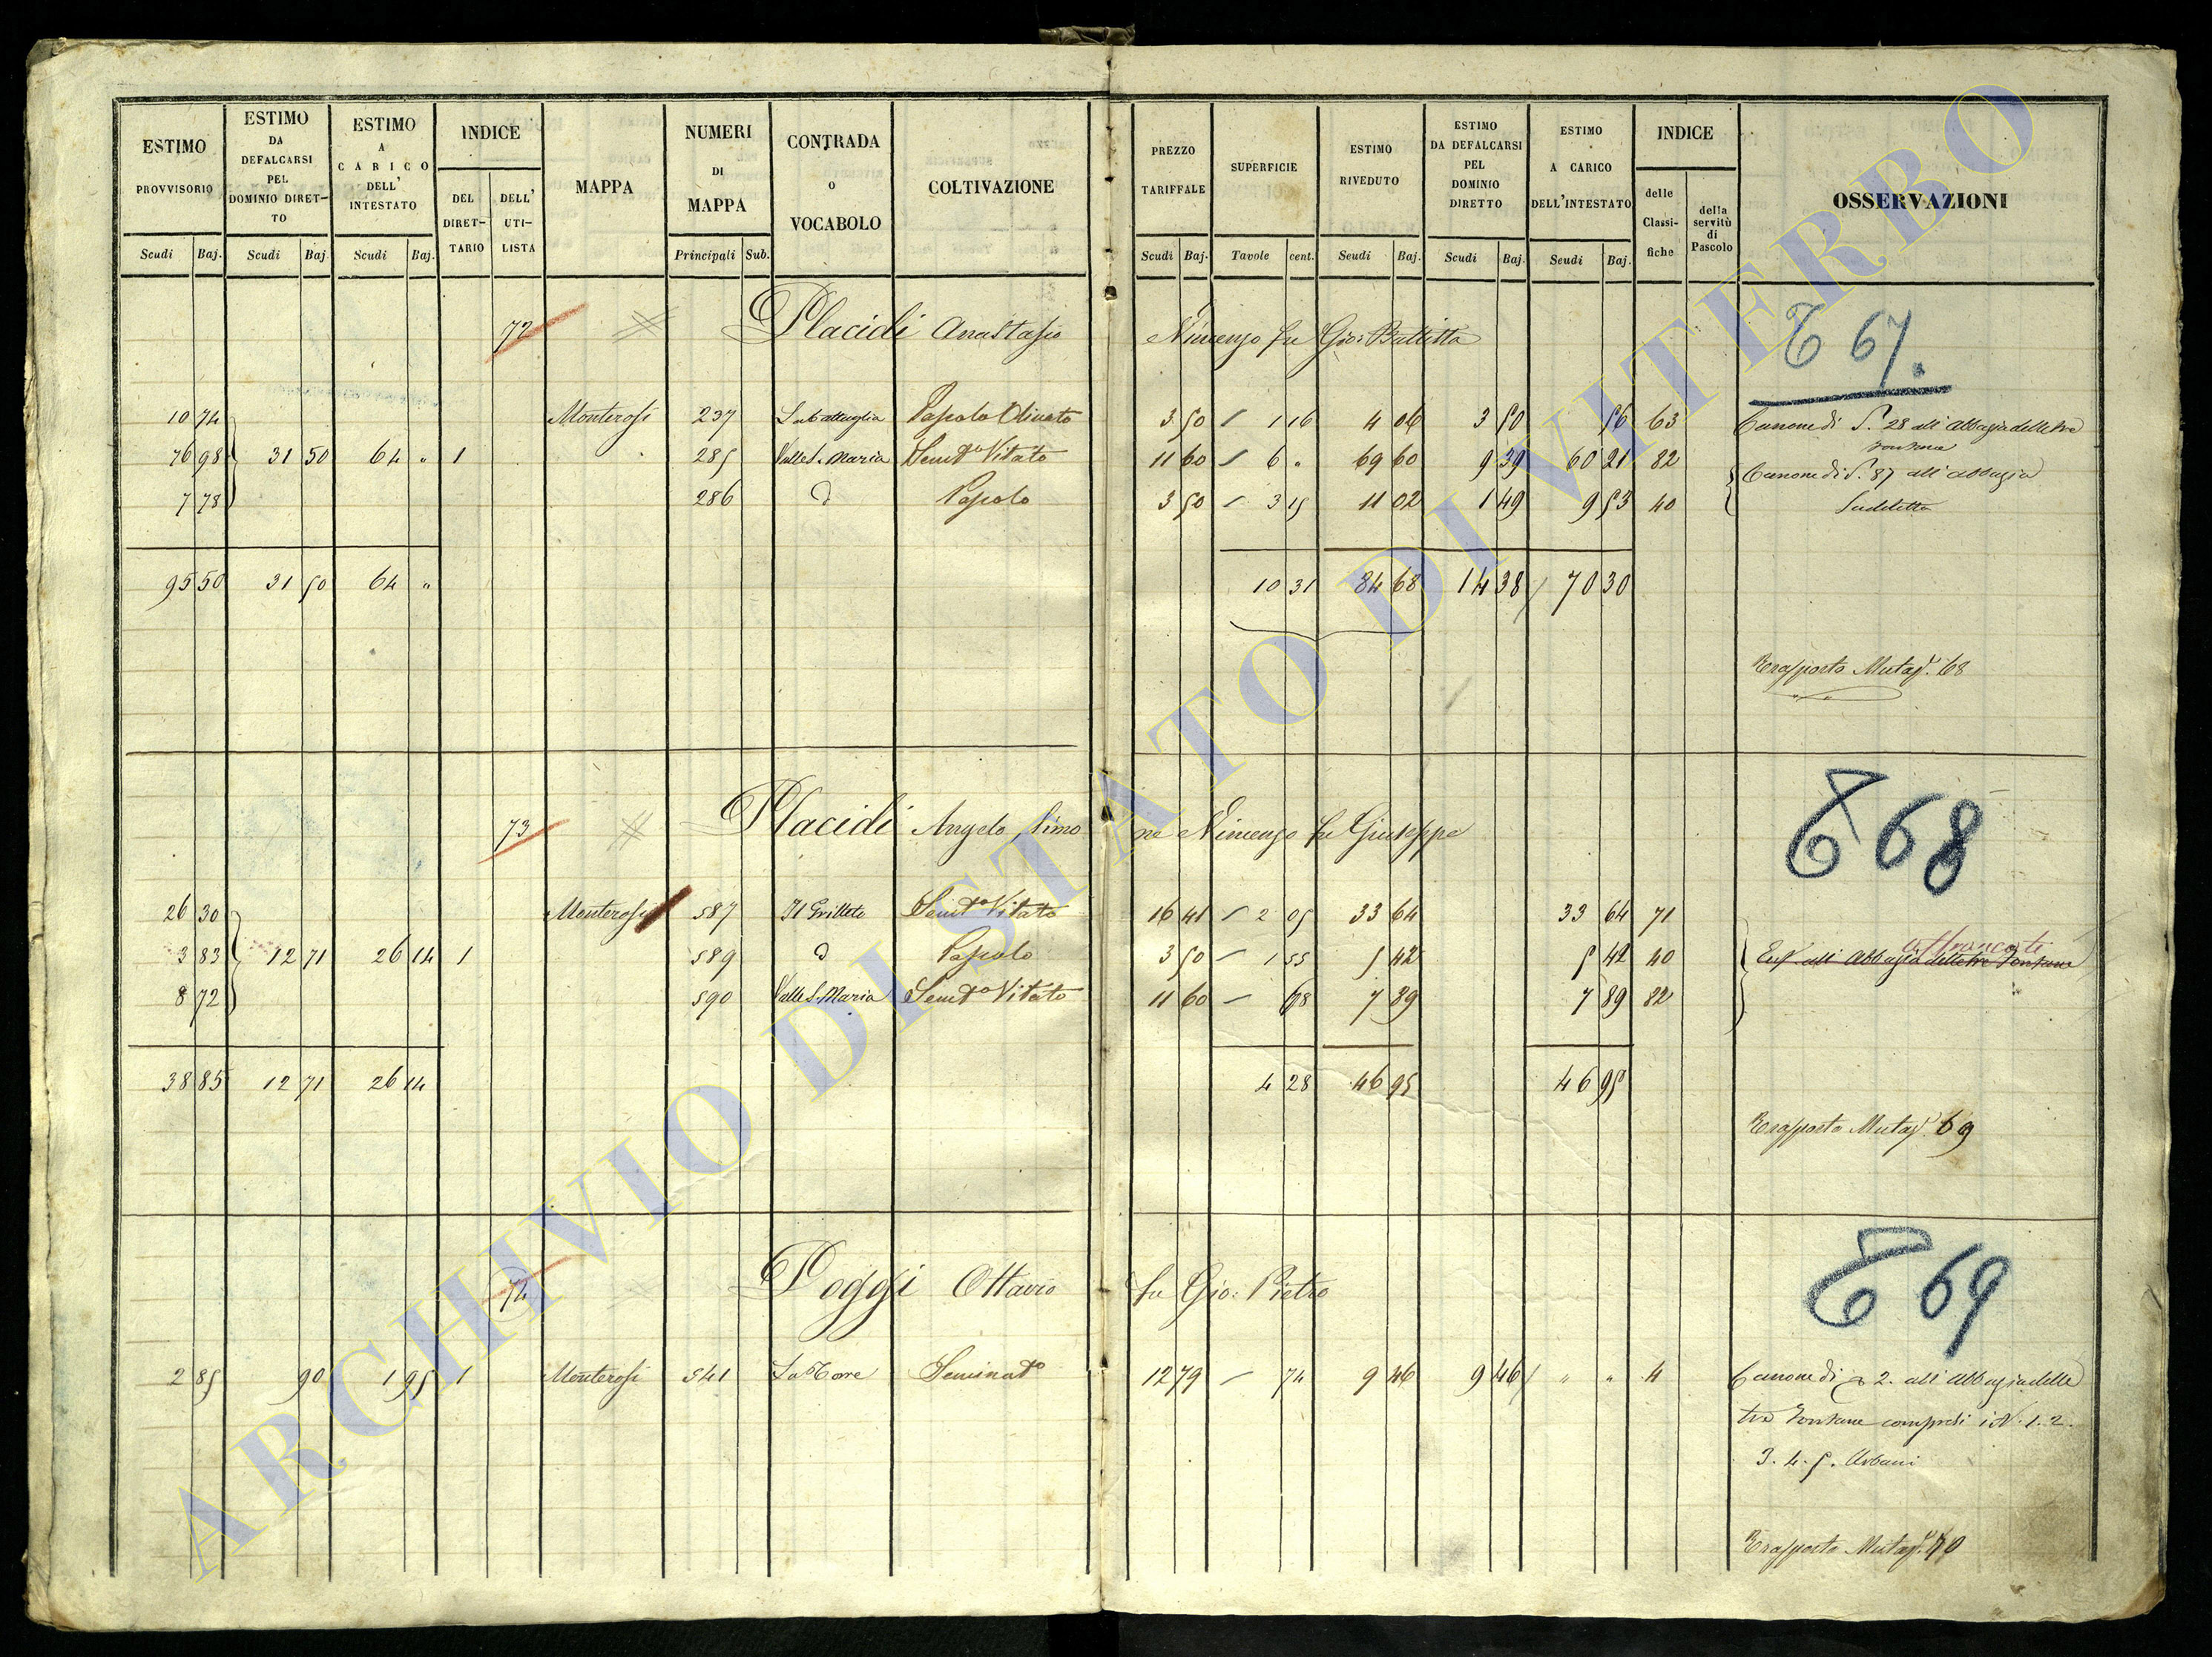 ESTIMO PROVVISORIO | ESTIMO DA DEFALCARSI PEL DOMINIO DIRET-TO | ESTIMO A CARICO DELL' INTESTATO | INDICE DEL DIRET-TARIO | DELL' UTI-LISTA | MAPPA | NUMERI DI MAPPA | CONTRADA O VOCABOLO | COLTIVAZIONE | PREZZO TARIFFALE | SUPERFICIE | ESTIMO RIVEDUTO | ESTIMO DA DEFALCARSI PEL DOMINIO DIRETTO | ESTIMO A CARICO DELL'INTESTATO | INDICE delle Classi-fiche | della servitù di Pascolo | OSSERVAZIONI
Scudi | Baj. | Scudi | Baj. | Scudi | Baj. | Principali | Sub. | Scudi | Baj. | Tavole | cent. | Scudi | Baj. | Scudi | Baj. | Scudi | Baj.
72 Placidi Anastasio Vincenzo fu Gio: Battista
T 67.
10 74 | Monterosi | 237 | Pascolo Olivato | 3 50 | 1 16 | 4 06 | 3 50 | 56 | 63 | Canone di S. 28 all' Abbazia delle tre
Fontane
76 98 | 31 50 | 64 " | 1 | 285 | Valle S. Maria | Semto Vitato | 11 60 | 6 " | 69 60 | 9 39 | 60 21 | 82 | Canone di S. 87 all' abbazia
7 78 | 286 | d | Pascolo | 3 50 | 3 15 | 11 02 | 1 49 | 9 53 | 40 | Suddetta
95 50 | 31 50 | 64 " | 10 31 | 84 68 | 14 38 | 70 30
Trasporto Mutaz. 68
73 Placidi Angelo, Simone Vincenzo fu Giuseppe
T 68
26 30 | Monterosi | 587 | Il Grilleto | Semto Vitato | 16 41 | 2 05 | 33 64 | 33 64 | 71
affrancati
3 83 | 12 71 | 26 14 | 1 | 589 | d | Pascolo | 3 50 | 1 55 | 5 42 | 5 42 | 40 | Enf. all' Abbazia delle tre Fontane
8 72 | 590 | Valle S. Maria | Semto Vitato | 11 60 | 68 | 7 89 | 7 89 | 82
38 85 | 12 71 | 26 14 | 4 28 | 46 95 | 46 95
Trasporto Mutaz. 69
74 Poggi Ottavio fu Gio: Pietro
T 69
2 85 | 90 | 1 95 | 1 | Monterosi | 541 | La Torre | Seminato | 12 79 | 74 | 9 46 | 9 46 | " " | 4 | Canone di 2. all' Abbazia delle
tre Fontane compresi i N. 1. 2.
3. 4. 5. Urbani
Trasporto Mutaz. 70
ARCHIVIO DI STATO DI VITERBO